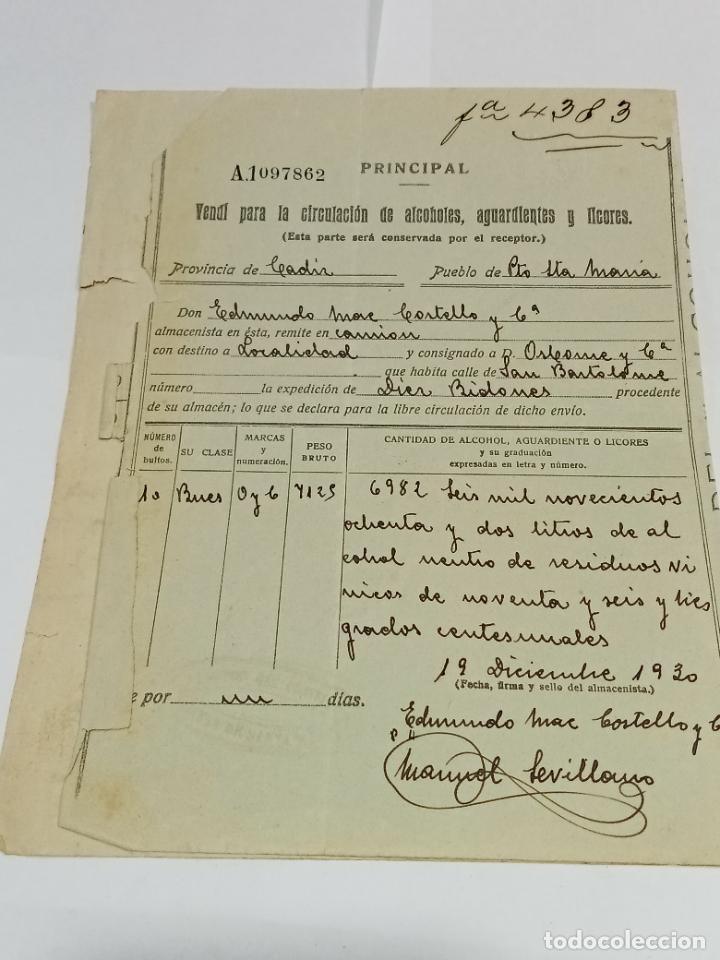 fª 4383
A.1097862 PRINCIPAL
Vendí para la circulación de alcoholes, aguardientes y licores.
(Esta parte será conservada por el receptor.)
Provincia de Cadiz Pueblo de Pto Sta Maria
Don Edmundo Mac Costello y Cª
almacenista en ésta, remite en camion
con destino a Localidad y consignado a D. Osborne y Cª
que habita calle de San Bartolome
número la expedición de Diez Bidones procedente
de su almacén; lo que se declara para la libre circulación de dicho envío.
NÚMERO de bultos. SU CLASE MARCAS y numeración. PESO BRUTO CANTIDAD DE ALCOHOL, AGUARDIENTE O LICORES
y su graduación
expresadas en letra y número.
10 Bnes O y C 7125 6982 Seis mil novecientos
ochenta y dos litros de al
cohol neutro de residuos vi
nicos de noventa y seis y tres
grados centesimales
19 Diciembre 1930
(Fecha, firma y sello del almacenista.)
e por días.
Edmundo Mac Costello y C
Manuel Sevillano
todocoleccion
todocoleccion.net